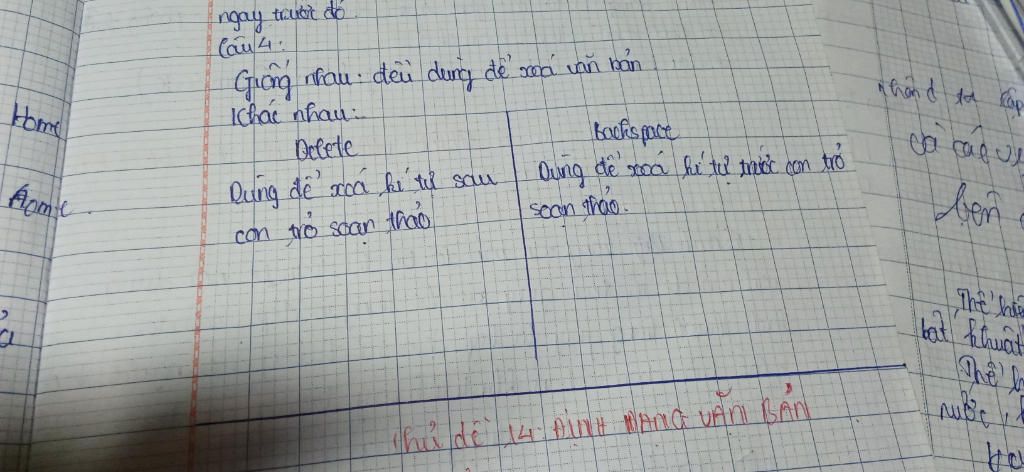 ngay trước đó
Câu 4:
Giống nhau: đều dùng để xoá văn bản
Khác nhau:
Delete
Dùng để xoá kí tự sau
con trỏ soạn thảo
Backspace
Dùng để xoá kí tự trước con trỏ
soạn thảo.
Chủ đề 14: ĐỊNH DẠNG VĂN BẢN
Home
Home.
bên
Thể hiện
bật thuật
Thể
nước,